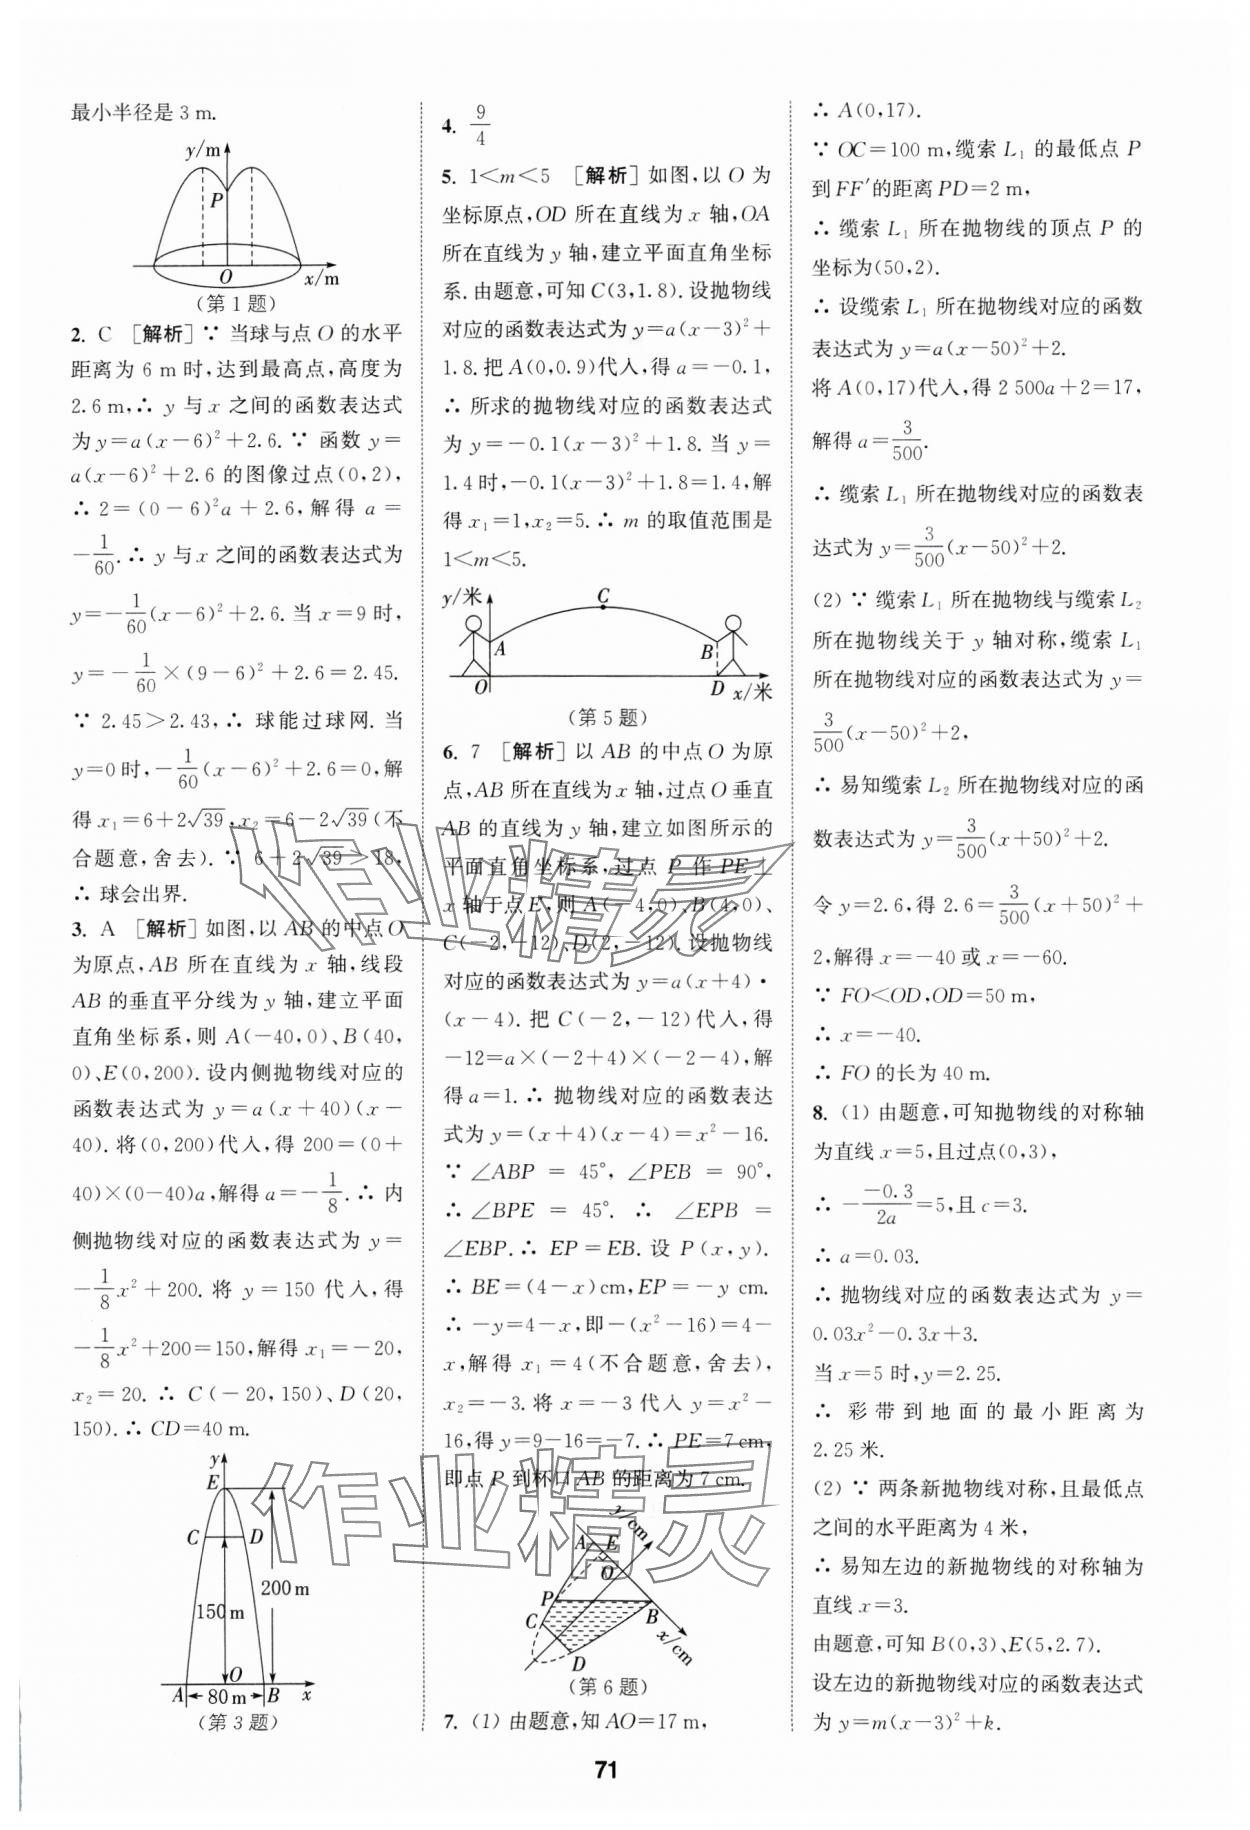 最小半径是 3 m.
y/m
P
O
x/m
(第 1 题)
2. C [解析] ∵ 当球与点 O 的水平
距离为 6 m 时,达到最高点,高度为
2.6 m,∴ y 与 x 之间的函数表达式
为 y=a(x-6)²+2.6. ∵ 函数 y=
a(x-6)²+2.6 的图像过点(0,2),
∴ 2=(0-6)²a+2.6,解得 a=
-1/60. ∴ y 与 x 之间的函数表达式为
y=-1/60(x-6)²+2.6. 当 x=9 时,
y=-1/60×(9-6)²+2.6=2.45.
∵ 2.45>2.43,∴ 球能过球网. 当
y=0 时,-1/60(x-6)²+2.6=0,解
得 x₁=6+2√39,x₂=6-2√39(不
合题意,舍去). ∵ 6+2√39>18,
∴ 球会出界.
3. A [解析] 如图,以 AB 的中点 O
为原点,AB 所在直线为 x 轴,线段
AB 的垂直平分线为 y 轴,建立平面
直角坐标系,则 A(-40,0)、B(40,
0)、E(0,200). 设内侧抛物线对应的
函数表达式为 y=a(x+40)(x-
40). 将(0,200)代入,得 200=(0+
40)×(0-40)a,解得 a=-1/8. ∴ 内
侧抛物线对应的函数表达式为 y=
-1/8x²+200. 将 y=150 代入,得
-1/8x²+200=150,解得 x₁=-20,
x₂=20. ∴ C(-20,150)、D(20,
150). ∴ CD=40 m.
y
E
C
D
200 m
150 m
O
A
80 m
B
x
(第 3 题)
4. 9/4
5. 1<m<5 [解析] 如图,以 O 为
坐标原点,OD 所在直线为 x 轴,OA
所在直线为 y 轴,建立平面直角坐标
系. 由题意,可知 C(3,1.8). 设抛物线
对应的函数表达式为 y=a(x-3)²+
1.8. 把 A(0,0.9)代入,得 a=-0.1,
∴ 所求的抛物线对应的函数表达式
为 y=-0.1(x-3)²+1.8. 当 y=
1.4 时,-0.1(x-3)²+1.8=1.4,解
得 x₁=1,x₂=5. ∴ m 的取值范围是
1<m<5.
y/米
C
A
B
O
D
x/米
(第 5 题)
6. 7 [解析] 以 AB 的中点 O 为原
点,AB 所在直线为 x 轴,过点 O 垂直
AB 的直线为 y 轴,建立如图所示的
平面直角坐标系,过点 P 作 PE⊥
x 轴于点 E,则 A(-4,0)、B(4,0)、
C(-2,-12)、D(2,-12). 设抛物线
对应的函数表达式为 y=a(x+4)·
(x-4). 把 C(-2,-12)代入,得
-12=a×(-2+4)×(-2-4),解
得 a=1. ∴ 抛物线对应的函数表达
式为 y=(x+4)(x-4)=x²-16.
∵ ∠ABP = 45°, ∠PEB = 90°,
∴ ∠BPE = 45°. ∴ ∠EPB =
∠EBP. ∴ EP=EB. 设 P(x,y).
∴ BE=(4-x)cm,EP=-y cm.
∴ -y=4-x,即-(x²-16)=4-
x,解得 x₁=4(不合题意,舍去),
x₂=-3. 将 x=-3 代入 y=x²-
16,得 y=9-16=-7. ∴ PE=7 cm,
即点 P 到杯口 AB 的距离为 7 cm.
y/cm
A
E
O
P
B
C
x/cm
D
(第 6 题)
7. (1) 由题意,知 AO=17 m,
∴ A(0,17).
∵ OC=100 m,缆索 L₁ 的最低点 P
到 FF′的距离 PD=2 m,
∴ 缆索 L₁ 所在抛物线的顶点 P 的
坐标为(50,2).
∴ 设缆索 L₁ 所在抛物线对应的函数
表达式为 y=a(x-50)²+2.
将 A(0,17)代入,得 2 500a+2=17,
解得 a=3/500.
∴ 缆索 L₁ 所在抛物线对应的函数表
达式为 y=3/500(x-50)²+2.
(2) ∵ 缆索 L₁ 所在抛物线与缆索 L₂
所在抛物线关于 y 轴对称,缆索 L₁
所在抛物线对应的函数表达式为 y=
3/500(x-50)²+2,
∴ 易知缆索 L₂ 所在抛物线对应的函
数表达式为 y=3/500(x+50)²+2.
令 y=2.6,得 2.6=3/500(x+50)²+
2,解得 x=-40 或 x=-60.
∵ FO<OD,OD=50 m,
∴ x=-40.
∴ FO 的长为 40 m.
8. (1) 由题意,可知抛物线的对称轴
为直线 x=5,且过点(0,3),
∴ -(-0.3)/(2a)=5,且 c=3.
∴ a=0.03.
∴ 抛物线对应的函数表达式为 y=
0.03x²-0.3x+3.
当 x=5 时,y=2.25.
∴ 彩带到地面的最小距离为
2.25 米.
(2) ∵ 两条新抛物线对称,且最低点
之间的水平距离为 4 米,
∴ 易知左边的新抛物线的对称轴为
直线 x=3.
由题意,可知 B(0,3)、E(5,2.7).
设左边的新抛物线对应的函数表达式
为 y=m(x-3)²+k.
71
作业精灵
作业精灵